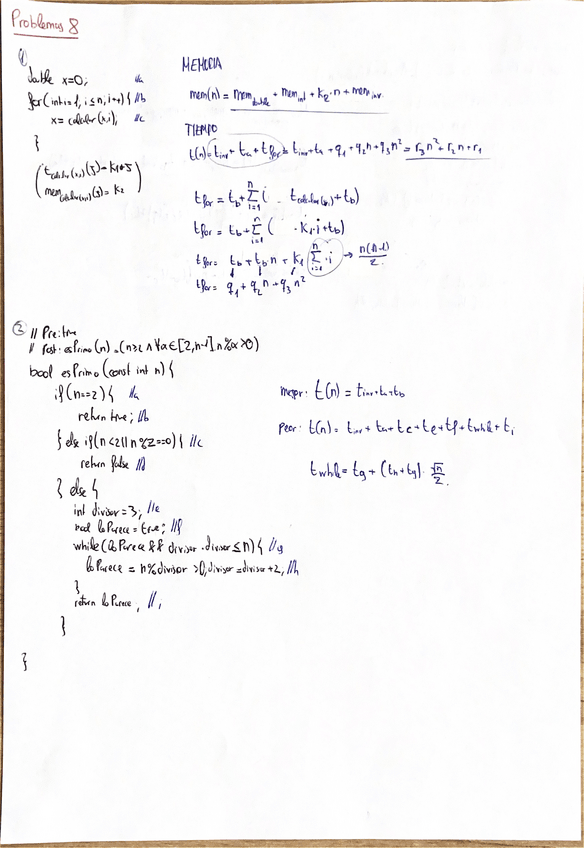 Problemas 8
①
double x=0; //a
for(int i=1; i≤n; i++){ //b
x = calcular(x,i); //c
}
(t calcular(x,i)(j) = K1·j
mem calcular(x,i)(j) = K2)
MEMORIA
mem(n) = mem double + mem int + K2·n + mem inv.
TIEMPO
t(n) = t inv + ta + t for = t inv + ta + q1 + q2 n + q3 n² = r3 n² + r2 n + r1
t for = tb + Σ i=1 n ( t calcular(x,i) + tb)
t for = tb + Σ i=1 n ( · K1·i + tb)
t for = tb + tb·n + K1 Σ i=1 n i → n(n-1)/2
t for = q1 + q2 n + q3 n²
② // Pre: true
// Post: esPrimo(n) = (n≥2 ∧ ∀α∈[2,n-1]. n%α>0)
bool esPrimo (const int n) {
if(n==2){ //a
return true; //b
} else if(n<2||n%2==0){ //c
return false //d
} else {
int divisor=3; //e
bool loParece = true; //f
while(loParece && divisor·divisor≤n){ //g
loParece = n%divisor >0; divisor=divisor+2; //h
}
return loParece; //i
}
}
mejor: t(n) = t inv + ta + tb
Peor: t(n) = t inv + ta + tc + te + tf + t while + ti
t while = tg + (th+tg) · √n/2.